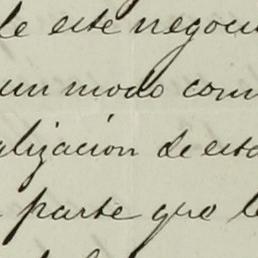 de este negoci
un modo com
alización de esta
parte que le